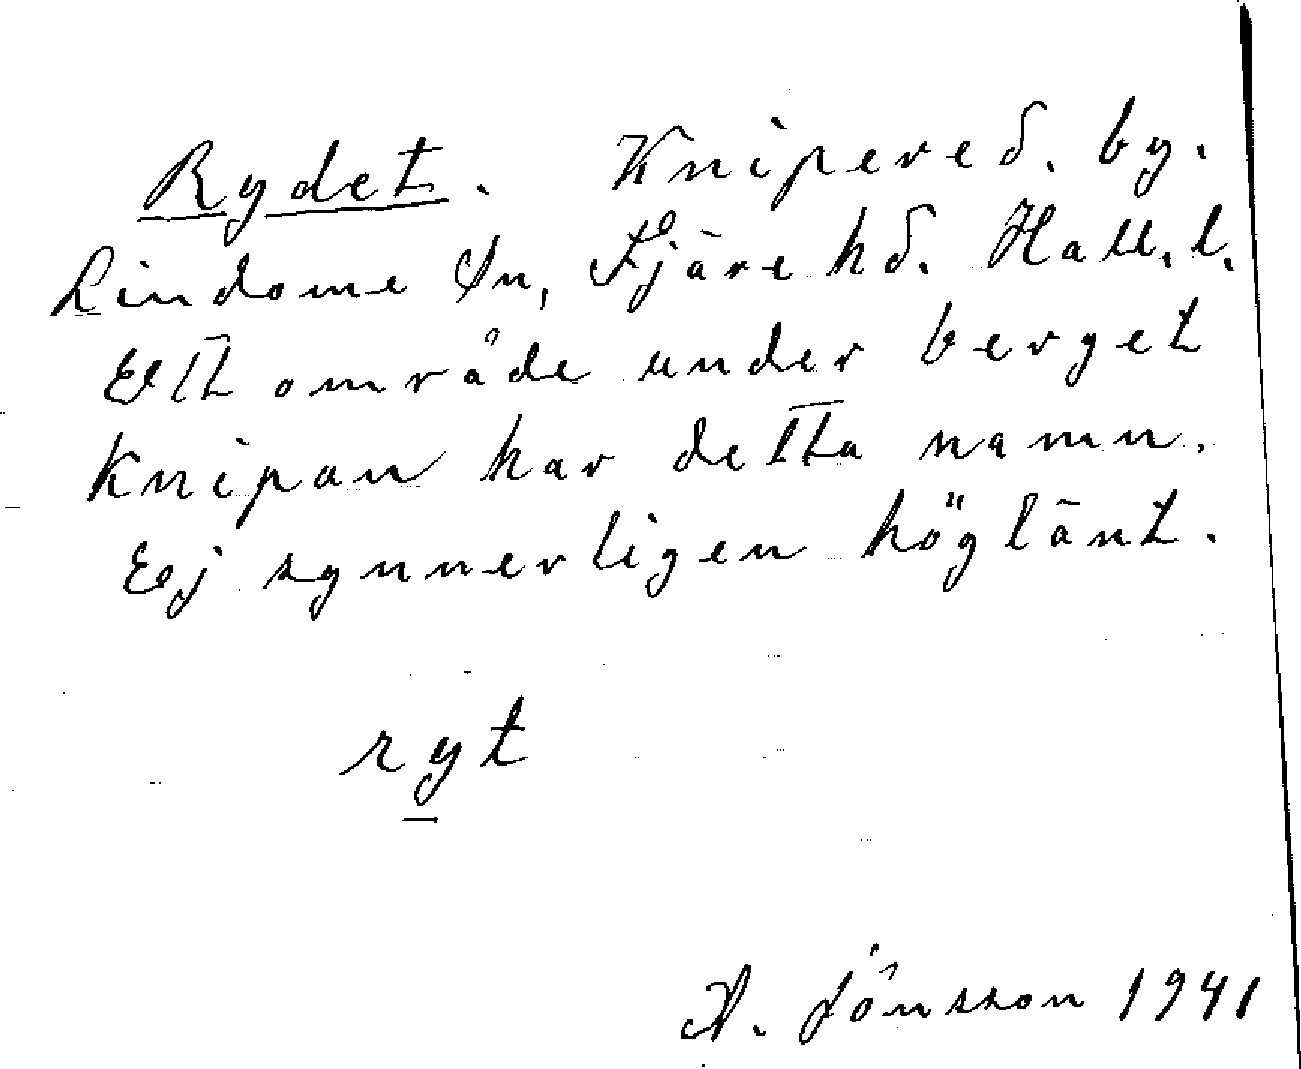 Rydet. Knipered. by.
Lindome Sn, Fjäre hd. Hall. l.
Ett område under berget
Knipan har detta namn.
Ej synnerligen höglänt.
ryt
A. Jönsson 1941